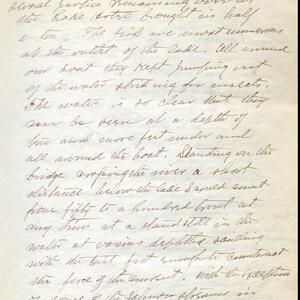 several parties remaining over at
the Lake Hotel bought in half
a ton. The fish are most numerous
at the outlet of the lake. All around
our boat they kept jumping out
of the water striking for insects.
The water is so clear that they
can be seen at a depth of
ten and more feet under and
all around the boat. Standing on the
bridge crossing the river a short
distance below the lake I could count
from fifty to a hundred trout at
any time at a stand still in the
water at various depths, sculling
with the tail just enough to counteract
the force of the current. With the exception
of some of the salmon streams in